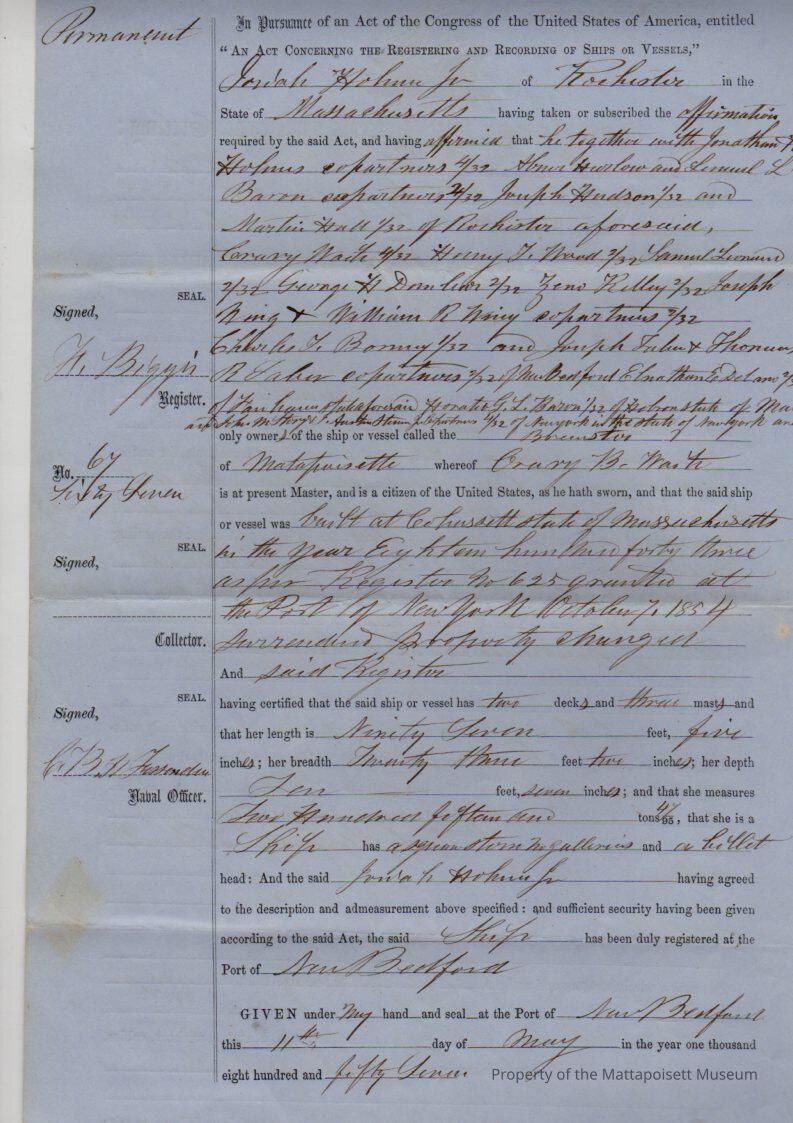 Permanent
In Pursuance of an Act of the Congress of the United States of America, entitled
"AN ACT CONCERNING THE REGISTERING AND RECORDING OF SHIPS OR VESSELS,"
Josiah Holmes Jr of Rochester in the
State of Massachusetts having taken or subscribed the affirmation
required by the said Act, and having affirmed that he together with Jonathan
Holmes copartners 4/32 Abner Harlow and Lemuel L
Baron copartners 2/32 Joseph Hudson 1/32 and
Martin Hall 1/32 of Rochester aforesaid,
Crary Waite 4/32 Henry T. Wood 2/32 Samuel Leonard
2/32 George H Dunbar 2/32 Zeno Kelley 2/32 Joseph
Wing & William R Wing copartners 2/32
SEAL.
Signed,
Charles T. Bonney 1/32 and Joseph Taber & Thomas
R Taber copartners 2/32 of New Bedford Elnathan E Delano
Register.
of Fairhaven of aforesaid Horatio G. L. Baron 1/32 of state of
copartners 2/32 of New York in the state of New York and
only owners of the ship or vessel called the Brewster
No. 67
Sixty Seven
of Matapoisette whereof Crary B. Waite
is at present Master, and is a citizen of the United States, as he hath sworn, and that the said ship
or vessel was built at Cohassett state of Massachusetts
SEAL.
Signed,
in the year Eighteen hundred forty three
as per Register No 625 granted at
the Port of New York October 7. 1854
Collector.
surrendered property changed
And said Register
SEAL.
Signed,
having certified that the said ship or vessel has two decks and three masts and
that her length is Ninety Seven feet, five
C. B. H. Fessenden
inches; her breadth Twenty three feet two inches; her depth
Naval Officer.
Ten feet, seven inches; and that she measures
Two Hundred fifteen and tons 47/95, that she is a
Ship has a square stern no galleries and a billet
head: And the said Josiah Holmes Jr having agreed
to the description and admeasurement above specified: and sufficient security having been given
according to the said Act, the said Ship has been duly registered at the
Port of New Bedford
GIVEN under My hand and seal at the Port of New Bedford
this 11th day of May in the year one thousand
eight hundred and fifty Seven.
Property of the Mattapoisett Museum